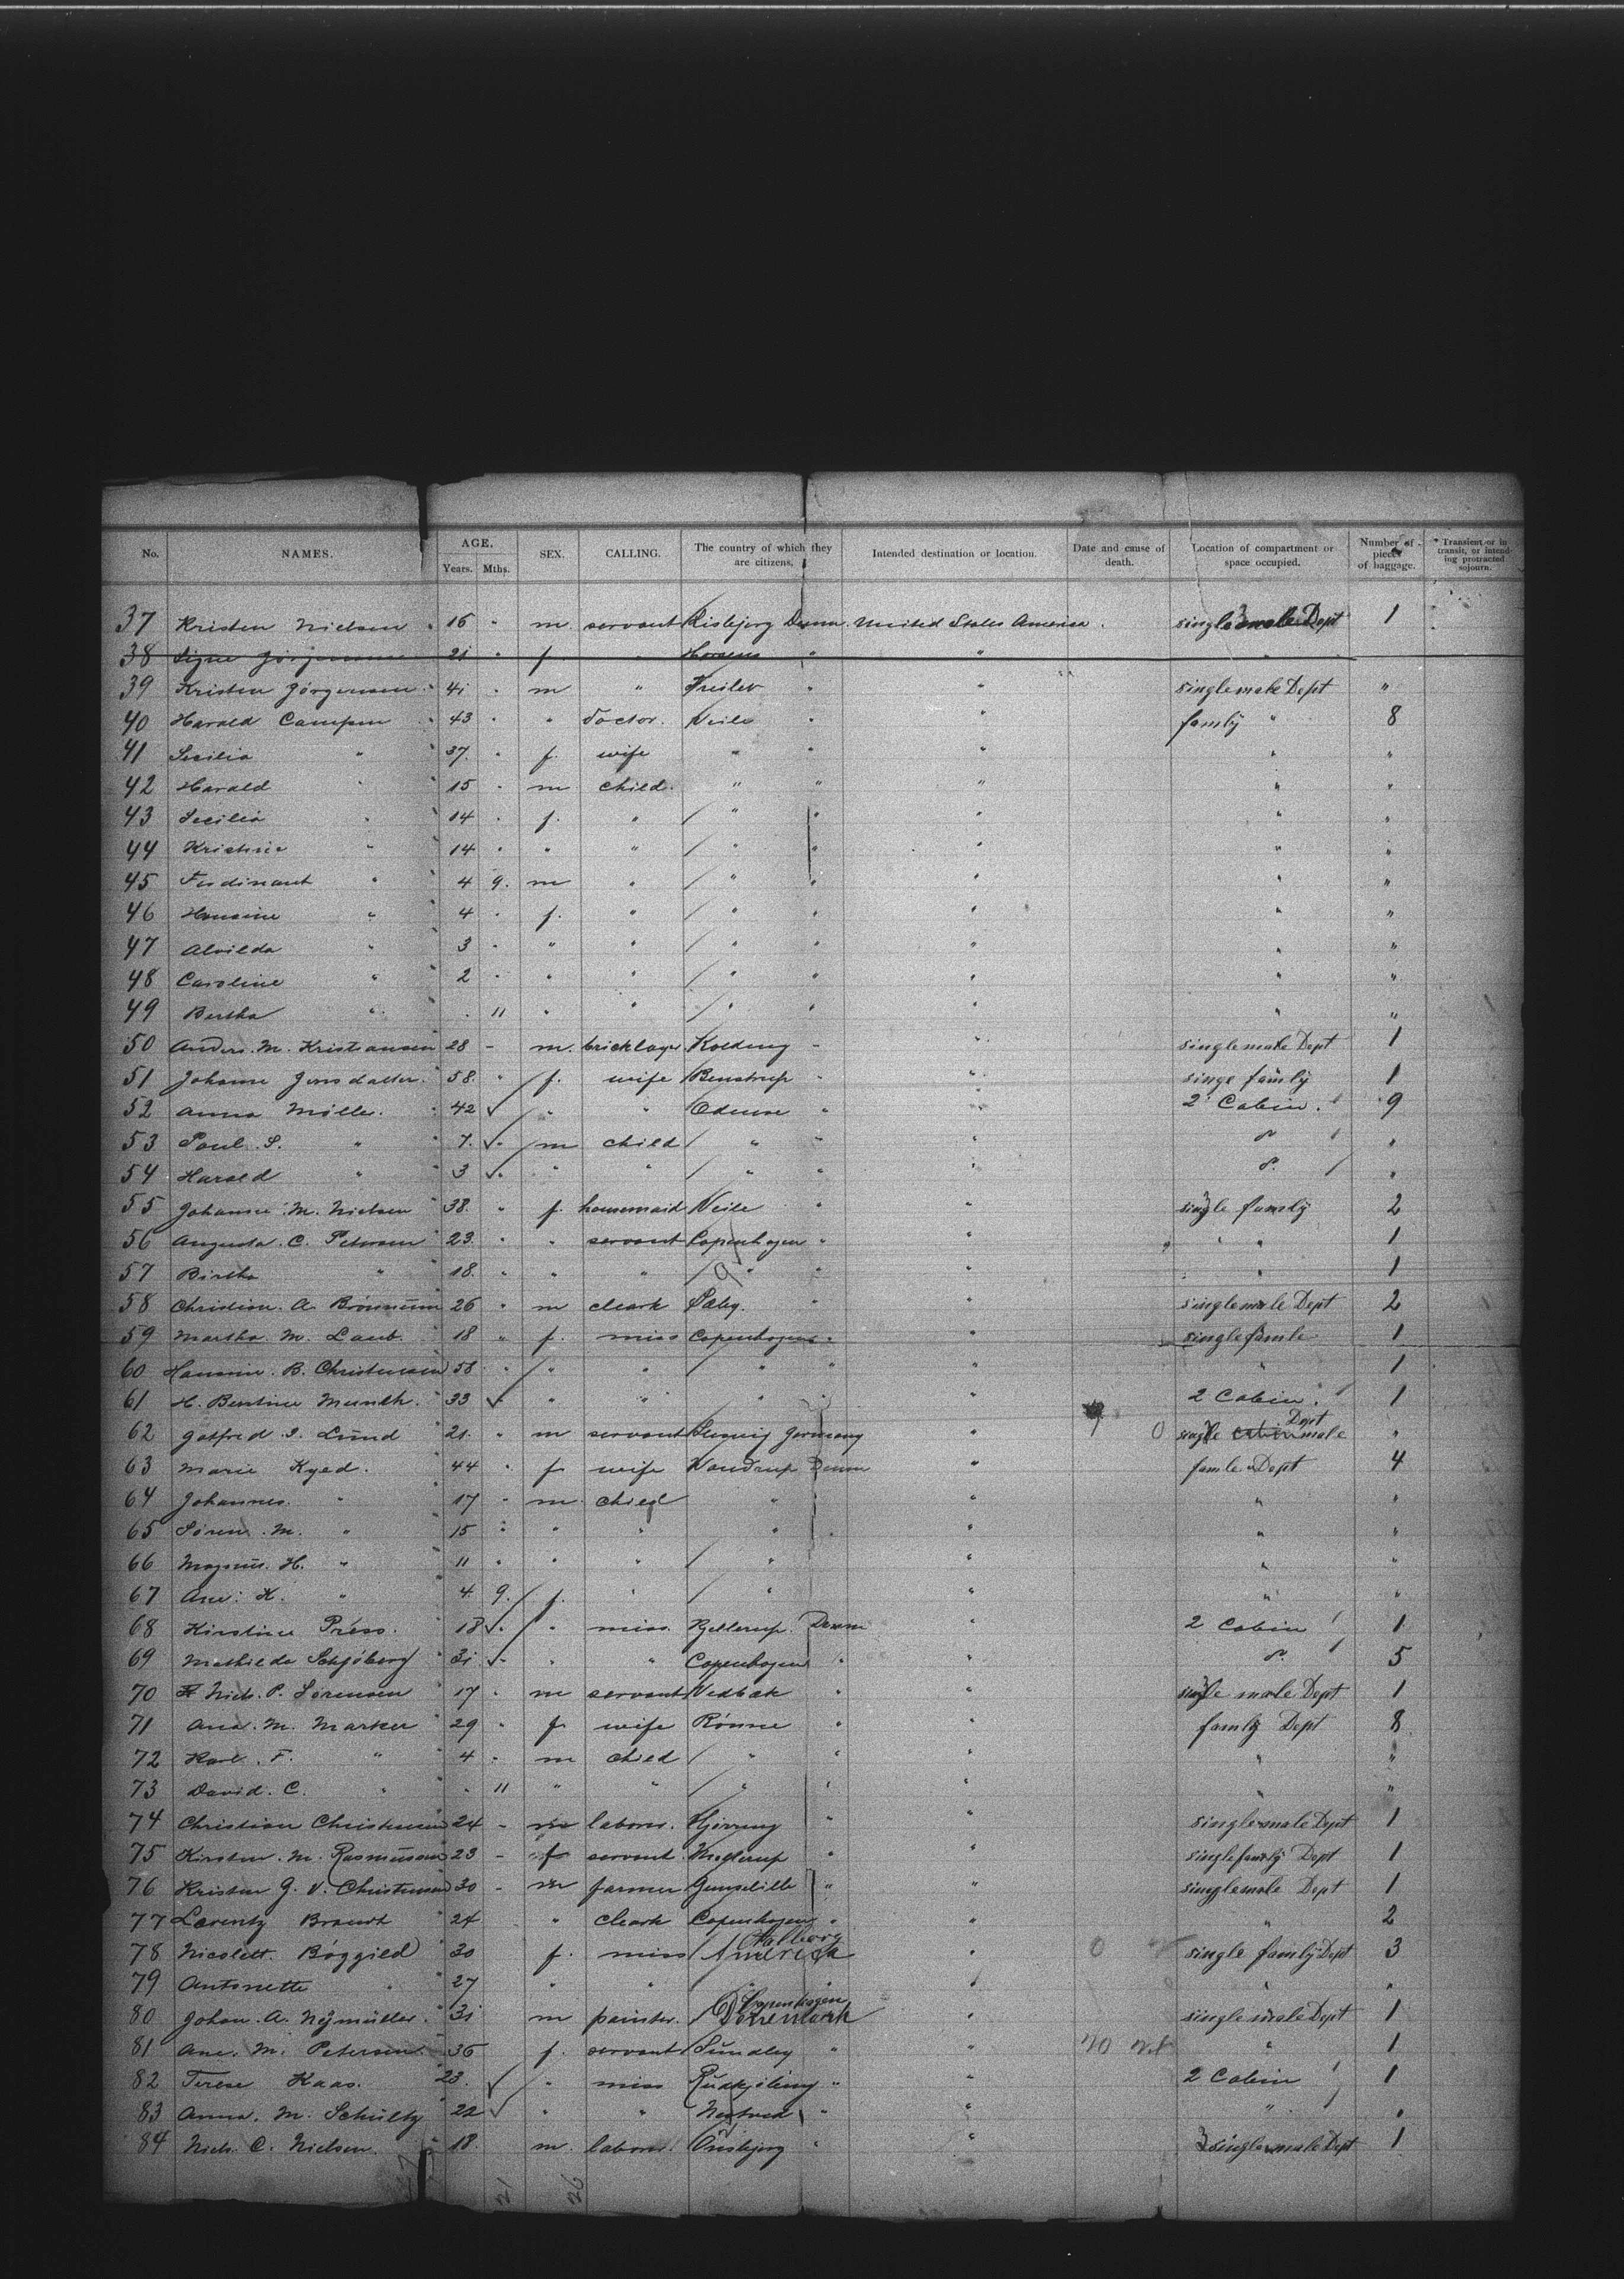 No. NAMES. AGE. Years. Mths. SEX. CALLING. The country of which they are citizens. Intended destination or location. Date and cause of death. Location of compartment or space occupied. Number of pieces of baggage. Transient or in transit, or intending protracted sojourn.
37 Kristen Nielsen " 16 " m servant Risbjerg Denm. United States America. single male Dept 1
38 Signe Jörgensen 21 " f. " Horsens " "
39 Kristen Jörgensen " 41 " m " Freslev " " single male Dept "
40 Harald Campen " 43 " " doctor. Veile " " family " 8
41 Secilia " " 37. " f. wife " " " " "
42 Harald " " 15 " m child. " " " " "
43 Secilia " " 14 " f. " " " " " "
44 Kristine " 14 " " " " " " " "
45 Ferdinant " " 4 9. m " " " " " "
46 Hansine " " 4 " f. " " " " " "
47 Alvilda " " 3 " " " " " " " "
48 Caroline " " 2 " " " " " " " "
49 Bertha " " . 11 " " " " " " "
50 Anders. M. Kristiansen 28 - m. bricklayer Kolding - " single male Dept 1
51 Johanne Jensdatter. " 58. " f. wife Benstrup " " singe family 1
52 Anna Möller. " 42 " " Odense " " 2 Cabin. 9
53 Poul. S. " " 7. " m child " " " "
54 Harald " " 3 " " " " " " "
55 Johanne. M. Nielsen " 38. " f. housemaid Veile " " single family 2
56 Augusta. C. Petersen " 23. " " servant Copenhagen " " " " 1
57 Birtha " " 18. " " " " " " " 1
58 Christian. A. Brönnum 26 " m cleark Sæby. " " single male Dept 2
59 Martha. M. Laub. " 18 " f. miss Copenhagen " " single famle 1
60 Hansine. B. Christensen 58 " " " " " " " 1
61 H. Bentine Munth. " 33 " " " " " 2 Cabin. 1
62 Gotfred. I. Lund " 21. " m servant Slesvig Germany " single male Dept "
63 Marie Kyed. " 44 " f wife Vandrup Denm " famle Dept 4
64 Johannes. " " 17 " m. chied " " " " "
65 Sören. M. " " 15 " " " " " " " "
66 Magnus. H. " " 11 " " " " " " "
67 Ane. K. " " 4 9. f. " " " " "
68 Kirstine Press. " 18 " miss. Kjellerup. Denm " 2 Cabin 1
69 Mathilda Schjöberg " 31. " " " Copenhagen " " 5
70 Niels. P. Sörensen " 17 " m servant Vedbæk " " single male Dept 1
71 Ana. M. Marker " 29 " f. wife Rönne " " family Dept 8
72 Karl. F. " " 4 " m chied " " " " "
73 David. C. " " " 11 " " " " " " "
74 Christian Christensen 24 - m labour. Hjörring " " single male Dept 1
75 Kirsten. M. Rasmussen 23 - f servant. " " single family Dept 1
76 Kristen G. V. Christensen 30 - m farmer " " single male Dept 1
77 Lorentz Brandt " 24 " cleark Copenhagen " " " 2
78 Nicolett. Böggild " 30 f. miss Aalborg America " 0 single family Dept 3
79 Antonette " " 27 " " " " " " "
80 Johan. A. Nÿmüller. " 31 m painter. Copenhagen Denemark " single male Dept 1
81 Ane. M. Petersen " 36 f. servant Sundby " " " 1
82 Terese Kaas. " 23. " miss Rudkjöbing " " 2 Cabin 1
83 Anna. M. Schultz " 22 " " Nestved " " " "
84 Niels. C. Nielsen. " 18. m. labour. Onsbjerg " " 3 single male Dept 1
27 21 26